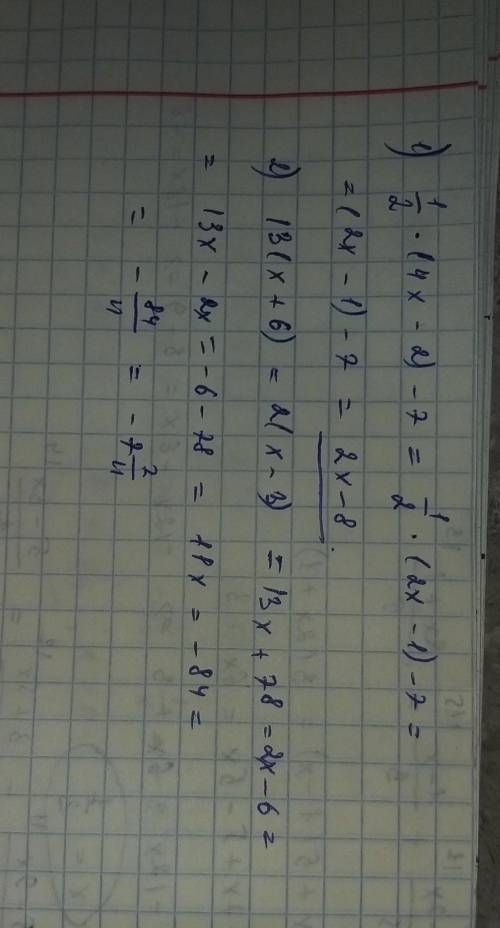 1) 1/2 · (4x - 2) - 7 = 1/2 · (2x - 1) - 7 =
= (2x - 1) - 7 = 2x - 8.
2) 13(x + 6) = 2(x - 3) = 13x + 78 = 2x - 6 =
= 13x - 2x = -6 - 78 = 11x = -84 =
= - 84/11 = - 7 7/11